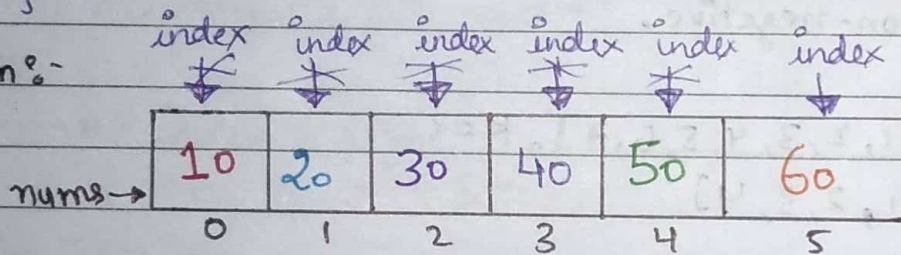 index index index index index index
n:-
10 20 30 40 50 60
nums→
0 1 2 3 4 5